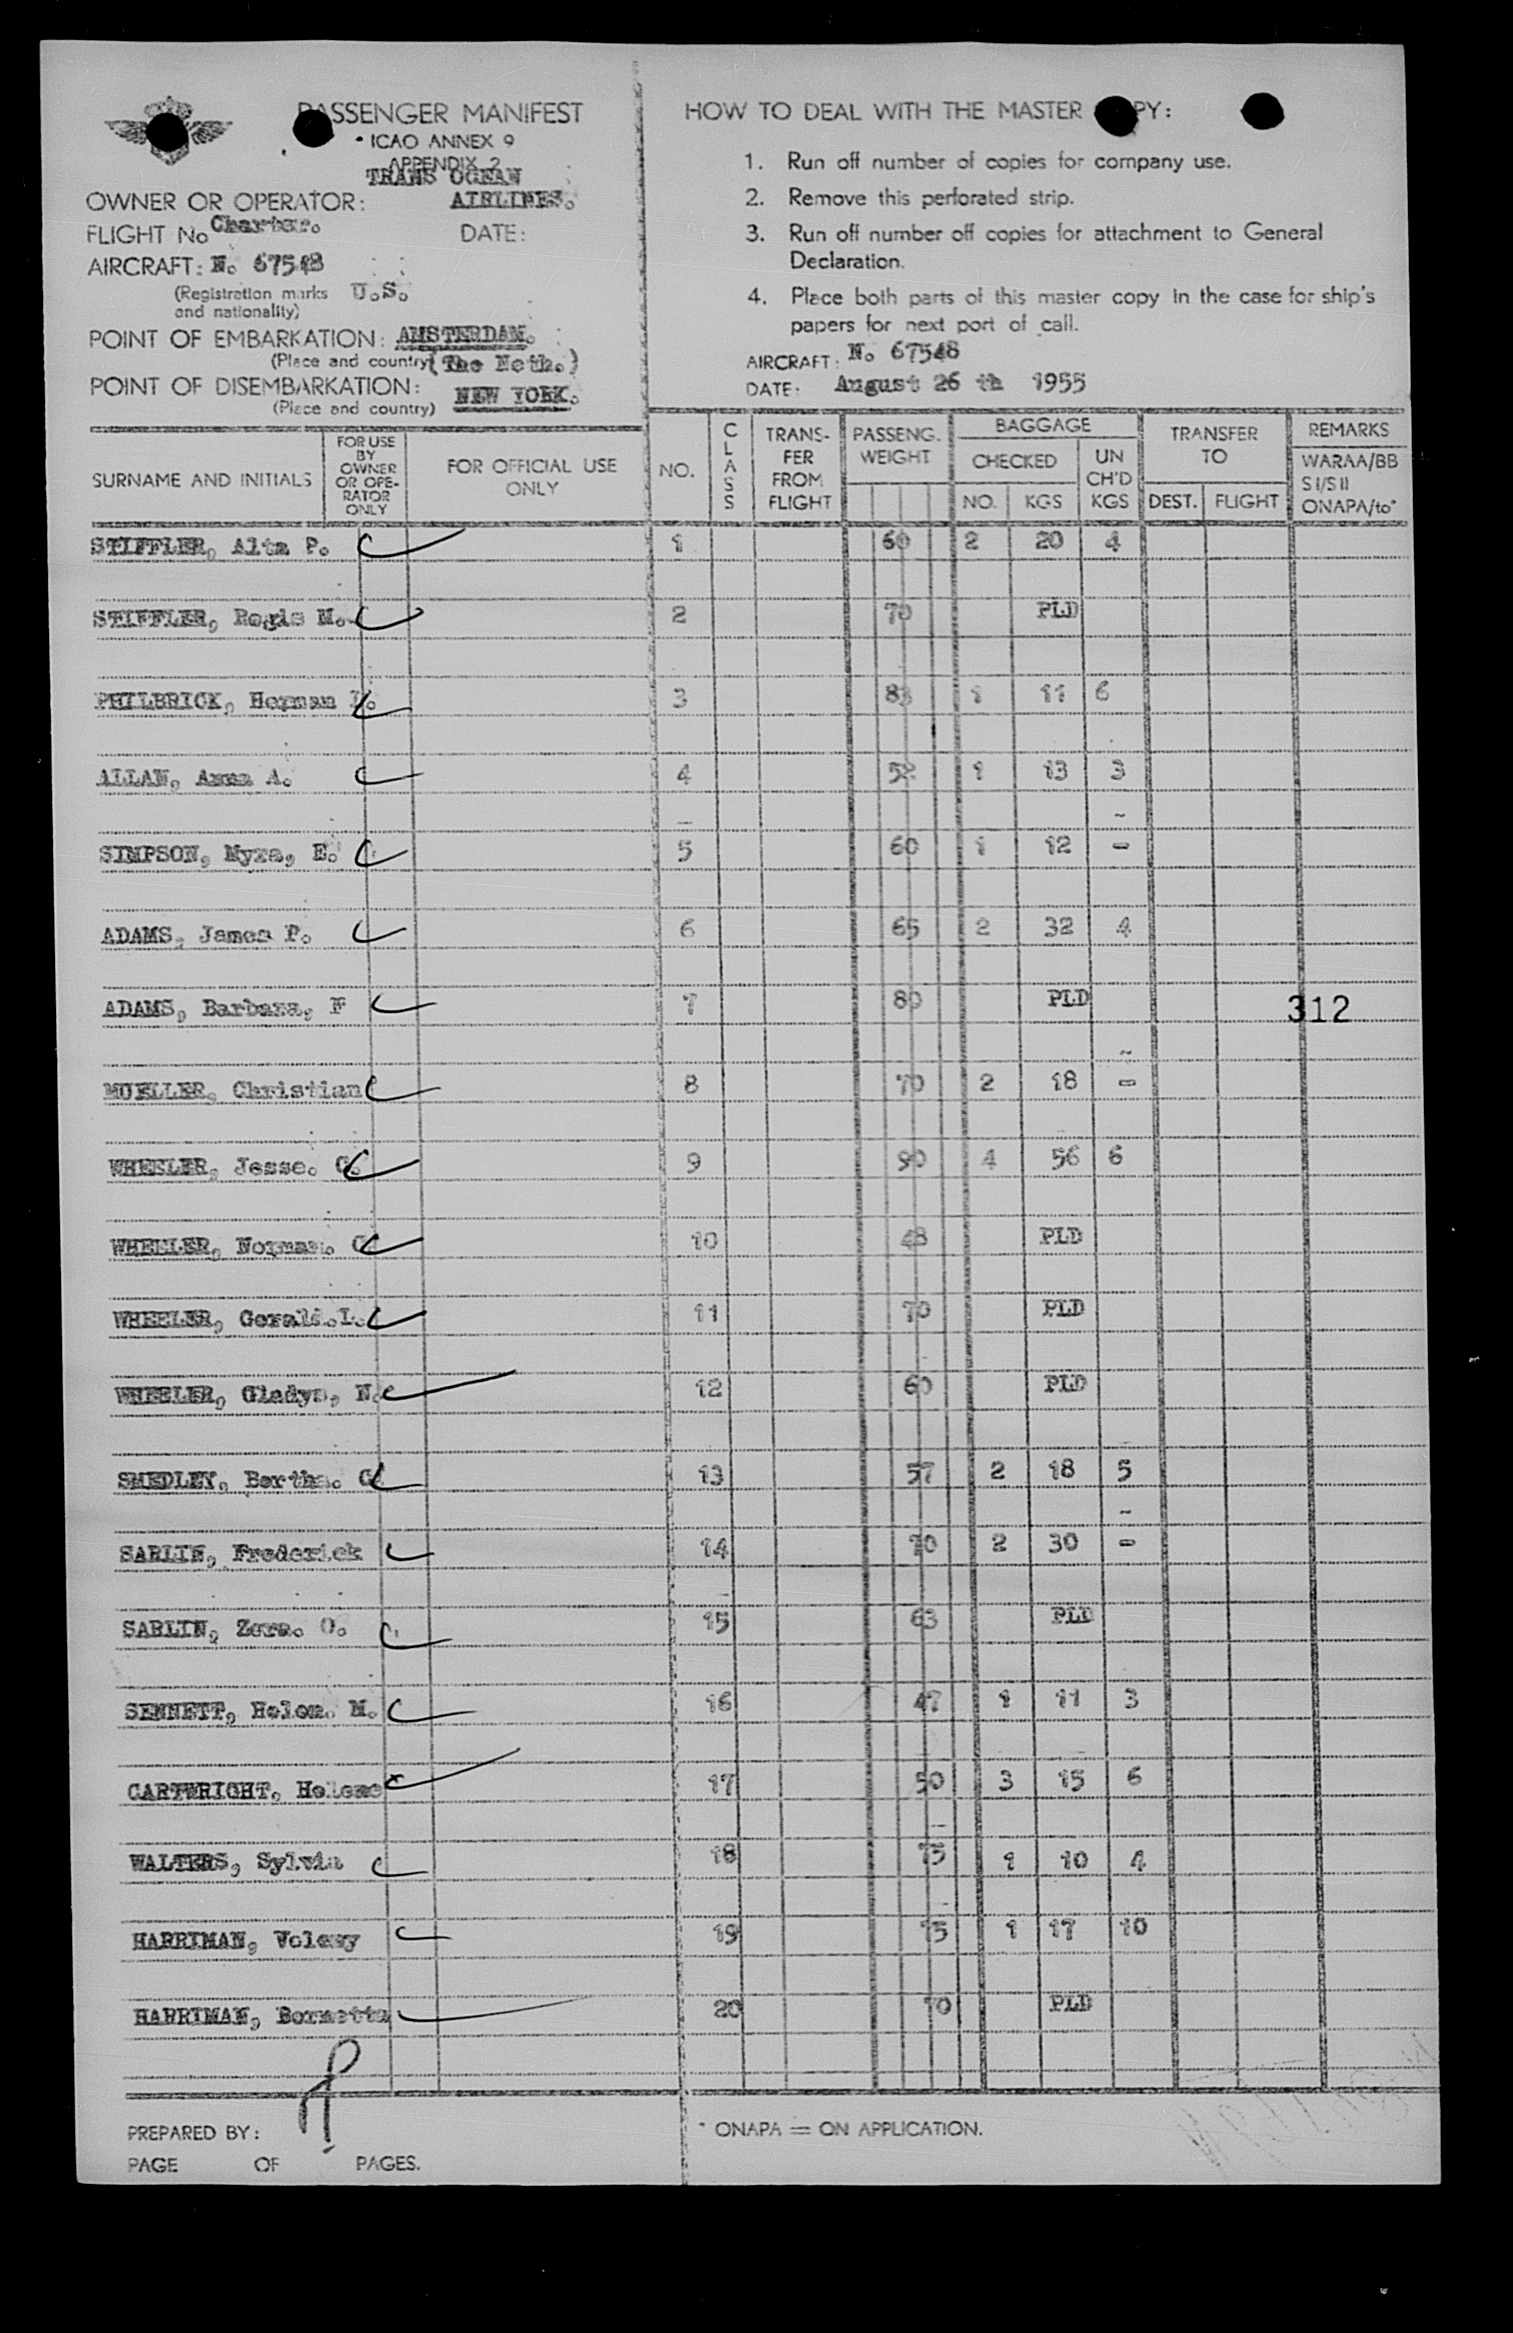 PASSENGER MANIFEST
* ICAO ANNEX 9
APPENDIX 2
TRANS OCEAN
OWNER OR OPERATOR: AIRLINES.
FLIGHT No Charter. DATE:
AIRCRAFT: N. 67548
(Registration marks U.S.
and nationality)
POINT OF EMBARKATION: AMSTERDAM.
(Place and country) (The Neth.)
POINT OF DISEMBARKATION: NEW YORK.
(Place and country)
HOW TO DEAL WITH THE MASTER COPY:
1. Run off number of copies for company use.
2. Remove this perforated strip.
3. Run off number off copies for attachment to General
Declaration.
4. Place both parts of this master copy in the case for ship's
papers for next port of call.
AIRCRAFT: N. 67548
DATE: August 26 th 1955
SURNAME AND INITIALS
FOR USE
BY
OWNER
OR OPE-
RATOR
ONLY
FOR OFFICIAL USE
ONLY
NO.
CLASS
TRANS-
FER
FROM
FLIGHT
PASSENG.
WEIGHT
BAGGAGE
CHECKED
NO. KGS
UN
CH'D
KGS
TRANSFER
TO
DEST. FLIGHT
REMARKS
WARAA/BB
SI/SII
ONAPA/to*
STIFFLER, Alta P. 1 60 2 20 4
STIFFLER, Regis M. 2 70 PLD
PHILBRICK, Herman L. 3 83 1 11 6
ALLAN, Anna A. 4 52 1 13 3
SIMPSON, Myra, E. 5 60 1 12 -
ADAMS, James P. 6 65 2 32 4
ADAMS, Barbara, F 7 80 PLD
312
MUELLER, Christian 8 70 2 18 -
WHEELER, Jesse. C. 9 90 4 56 6
WHEELER, Norman. C 10 48 PLD
WHEELER, Gerald.L. 11 70 PLD
WHEELER, Gladys, N. 12 60 PLD
SMEDLEY, Bertha. C 13 57 2 18 5
SARLIN, Frederick 14 70 2 30 -
SARLIN, Zora. O. 15 63 PLD
SENNETT, Helen. M. 16 47 1 11 3
CARTWRIGHT, Helene 17 50 3 15 6
WALTERS, Sylvia 18 75 1 10 4
HARRIMAN, Volney 19 75 1 17 10
HARRIMAN, Bernetta 20 70 PLD
PREPARED BY:
PAGE OF PAGES.
* ONAPA = ON APPLICATION.